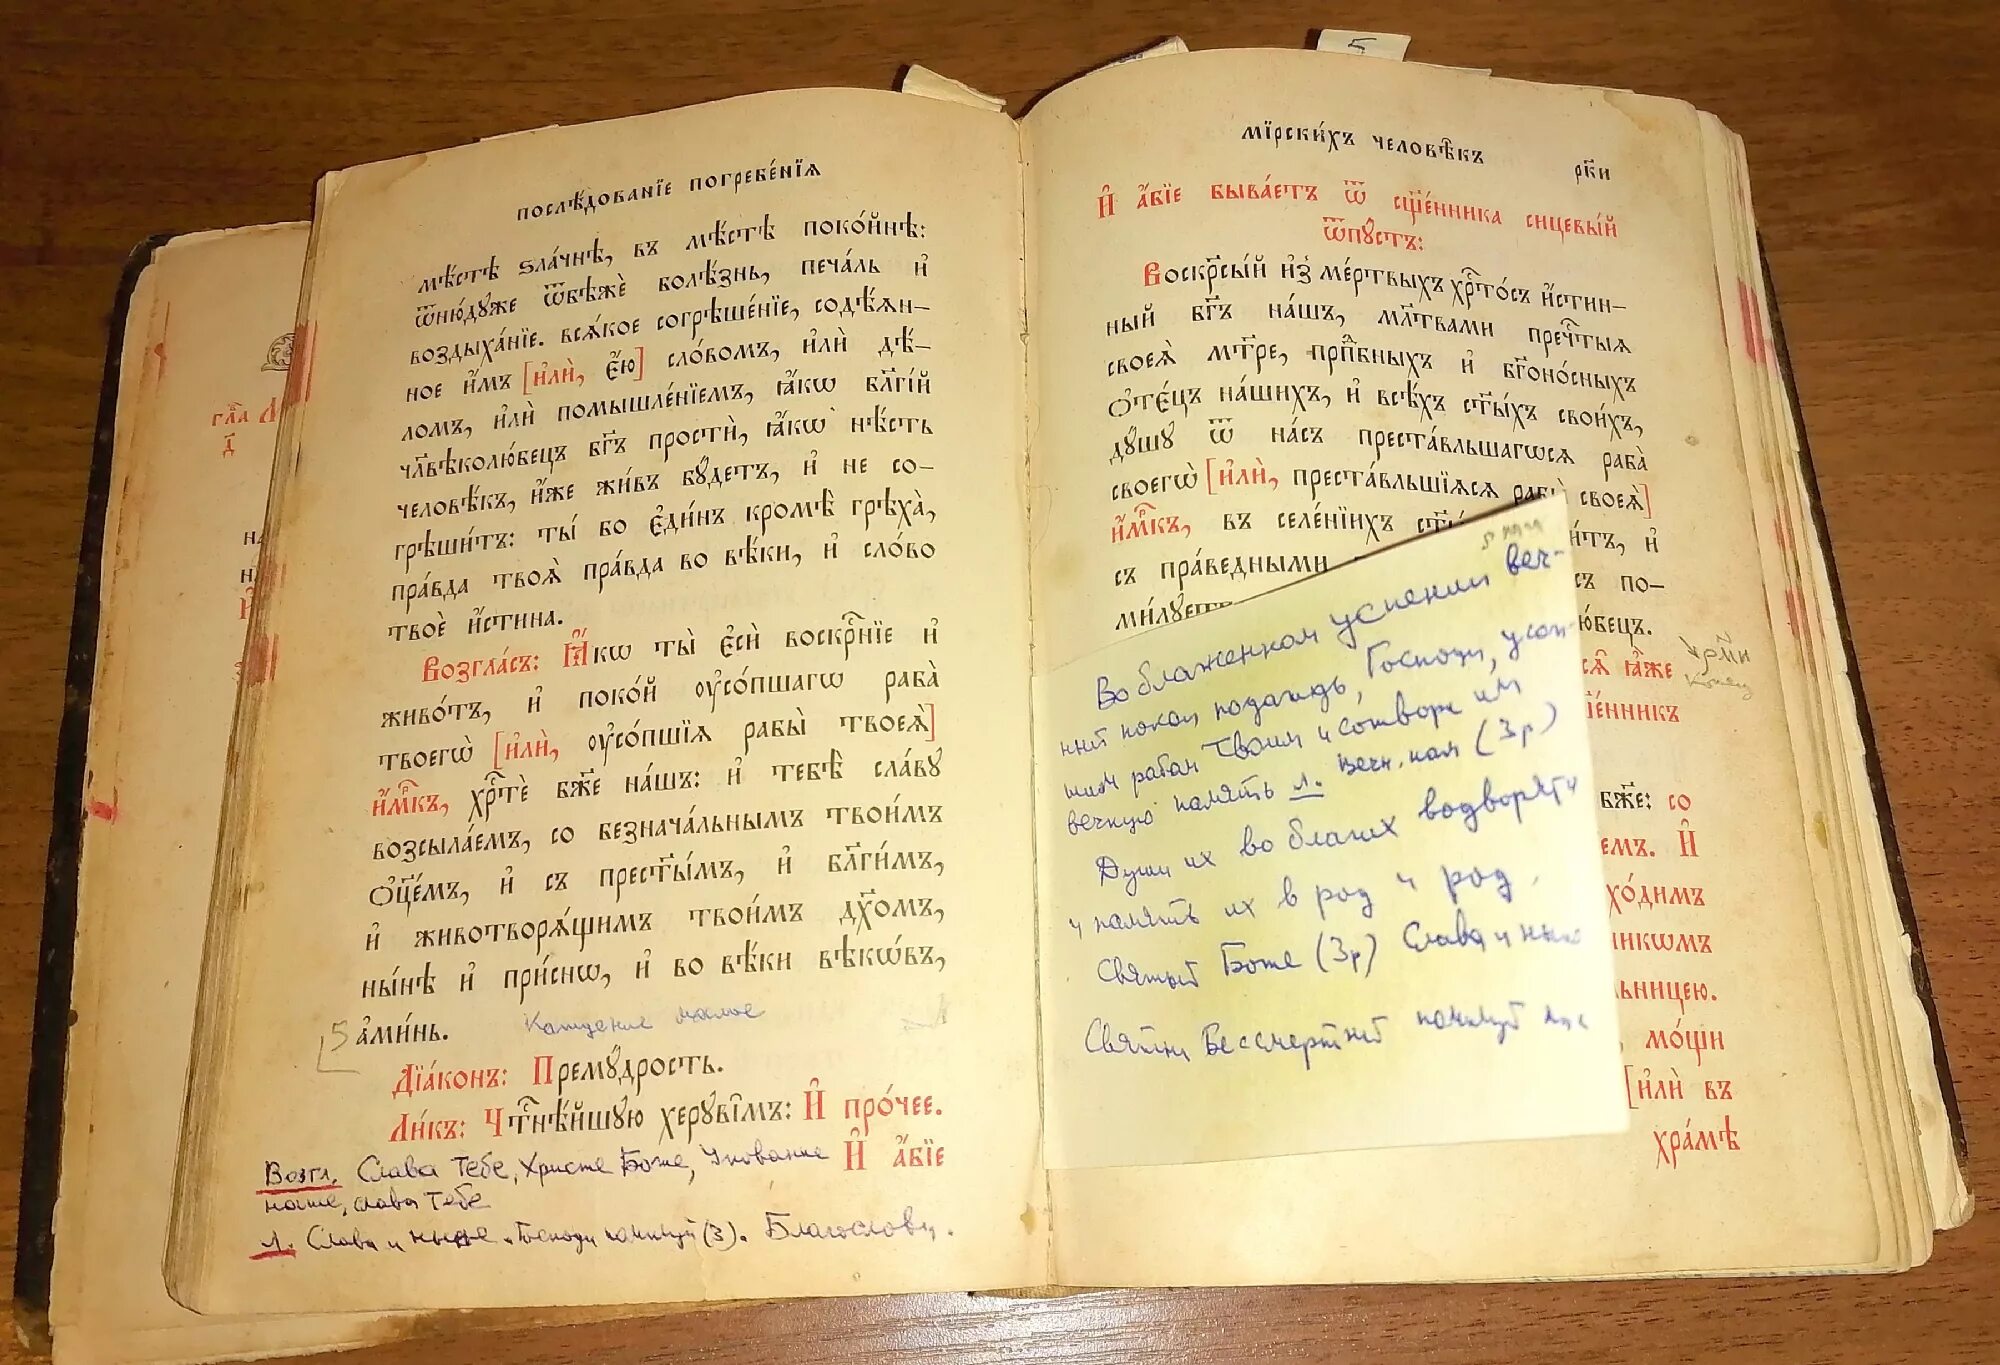 глⷡ҇а
д҃
ПОСЛѢ́ДОВАНЇЕ ПОГРЕБЕ́НЇѦ
мѣ́стѣ ѕла́чнѣ, въ мѣ́стѣ поко́йнѣ:
ѿню́дꙋже ѿбѣжѐ болѣ́знь, печа́ль и҆
воздыха́нїе. всѧ́кое согрѣше́нїе, содѣ́ѧн-
ное и҆́мъ [и҆лѝ, є҆́ю] сло́вомъ, и҆лѝ дѣ́-
ломъ, и҆лѝ помышле́нїемъ, ꙗ҆́кѡ бл҃гі́й
чл҃вѣколю́бецъ бг҃ъ простѝ, ꙗ҆́кѡ нѣ́сть
человѣ́къ, и҆́же жи́въ бꙋ́детъ, и҆ не со-
грѣши́тъ: ты́ бо є҆ди́нъ кромѣ̀ грѣха̀,
пра́вда твоѧ̀ пра́вда во вѣ́ки, и҆ сло́во
твоѐ и҆́стина.
Возгла́съ: Ꙗ҆́кѡ ты̀ є҆сѝ воскрⷭ҇нїе и҆
живо́тъ, и҆ поко́й ᲂу҆со́пшагѡ раба̀
твоегѡ̀ [и҆лѝ, ᲂу҆со́пшїѧ рабы̀ твоеѧ̀]
и҆́мⷬ҇къ, хрⷭ҇тѐ бж҃е на́шъ: и҆ тебѣ̀ сла́вꙋ
возсыла́емъ, со безнача́льнымъ твои́мъ
ѻ҆ц҃е́мъ, и҆ съ прест҃ы́мъ, и҆ бл҃ги́мъ,
и҆ животворѧ́щимъ твои́мъ дх҃омъ,
ны́нѣ и҆ при́снѡ, и҆ во вѣ́ки вѣкѡ́въ,
5 а҆ми́нь. Каждение малое
Дїа́конъ: Премꙋ́дрость.
Ли́къ: Чⷭ҇тнѣ́йшꙋю херꙋві̑мъ: И҆ про́чее.
И҆ а҆́бїе
Возгл. Слава Тебе, Христе Боже, Упование
наше, слава Тебе
Л. Слава и ныне. Господи помилуй (3). Благослови.
5
МІРСКИ́ХЪ ЧЕЛОВѢ́КЪ
рк҃и
И҆ а҆́бїе быва́етъ ѿ сщ҃е́нника сицевы́й
ѿпꙋ́стъ:
Воскрⷭ҇сы́й и҆з̾ ме́ртвыхъ хрⷭ҇то́съ и҆́стин-
ный бг҃ъ на́шъ, мл҃твами пречⷭ҇тыѧ
своеѧ̀ мт҃ре, прпⷣбныхъ и҆ бг҃оно́сныхъ
ѻ҆те́цъ на́шихъ, и҆ всѣ́хъ ст҃ы́хъ свои́хъ,
дꙋ́шꙋ ѿ на́съ преста́вльшагѡсѧ раба̀
своегѡ̀ [и҆лѝ, преста́вльшїѧсѧ рабы̀ своеѧ̀]
и҆́мⷬ҇къ, въ селе́нїихъ
итъ, и҆
съ пра́ведными
съ по-
ми́лꙋетъ
юбецъ.
ꙗ҆́же
щ҃е́нникъ
рм҃и
конец
Во блаженном успении веч-
ный покой подаждь, Господи, усоп-
шим рабам Твоим и сотвори им
вечную память Л. Вечн. пам (3р)
Души их во благих водворятся
и память их в род и род.
Святый Боже (3р) Слава и ныне
Святый Бессмертный помилуй нас
бж҃е: со
емъ. И҆
хо́димъ
никѡмъ
льницею.
мо́щи
[и҆лѝ въ
хра́мѣ